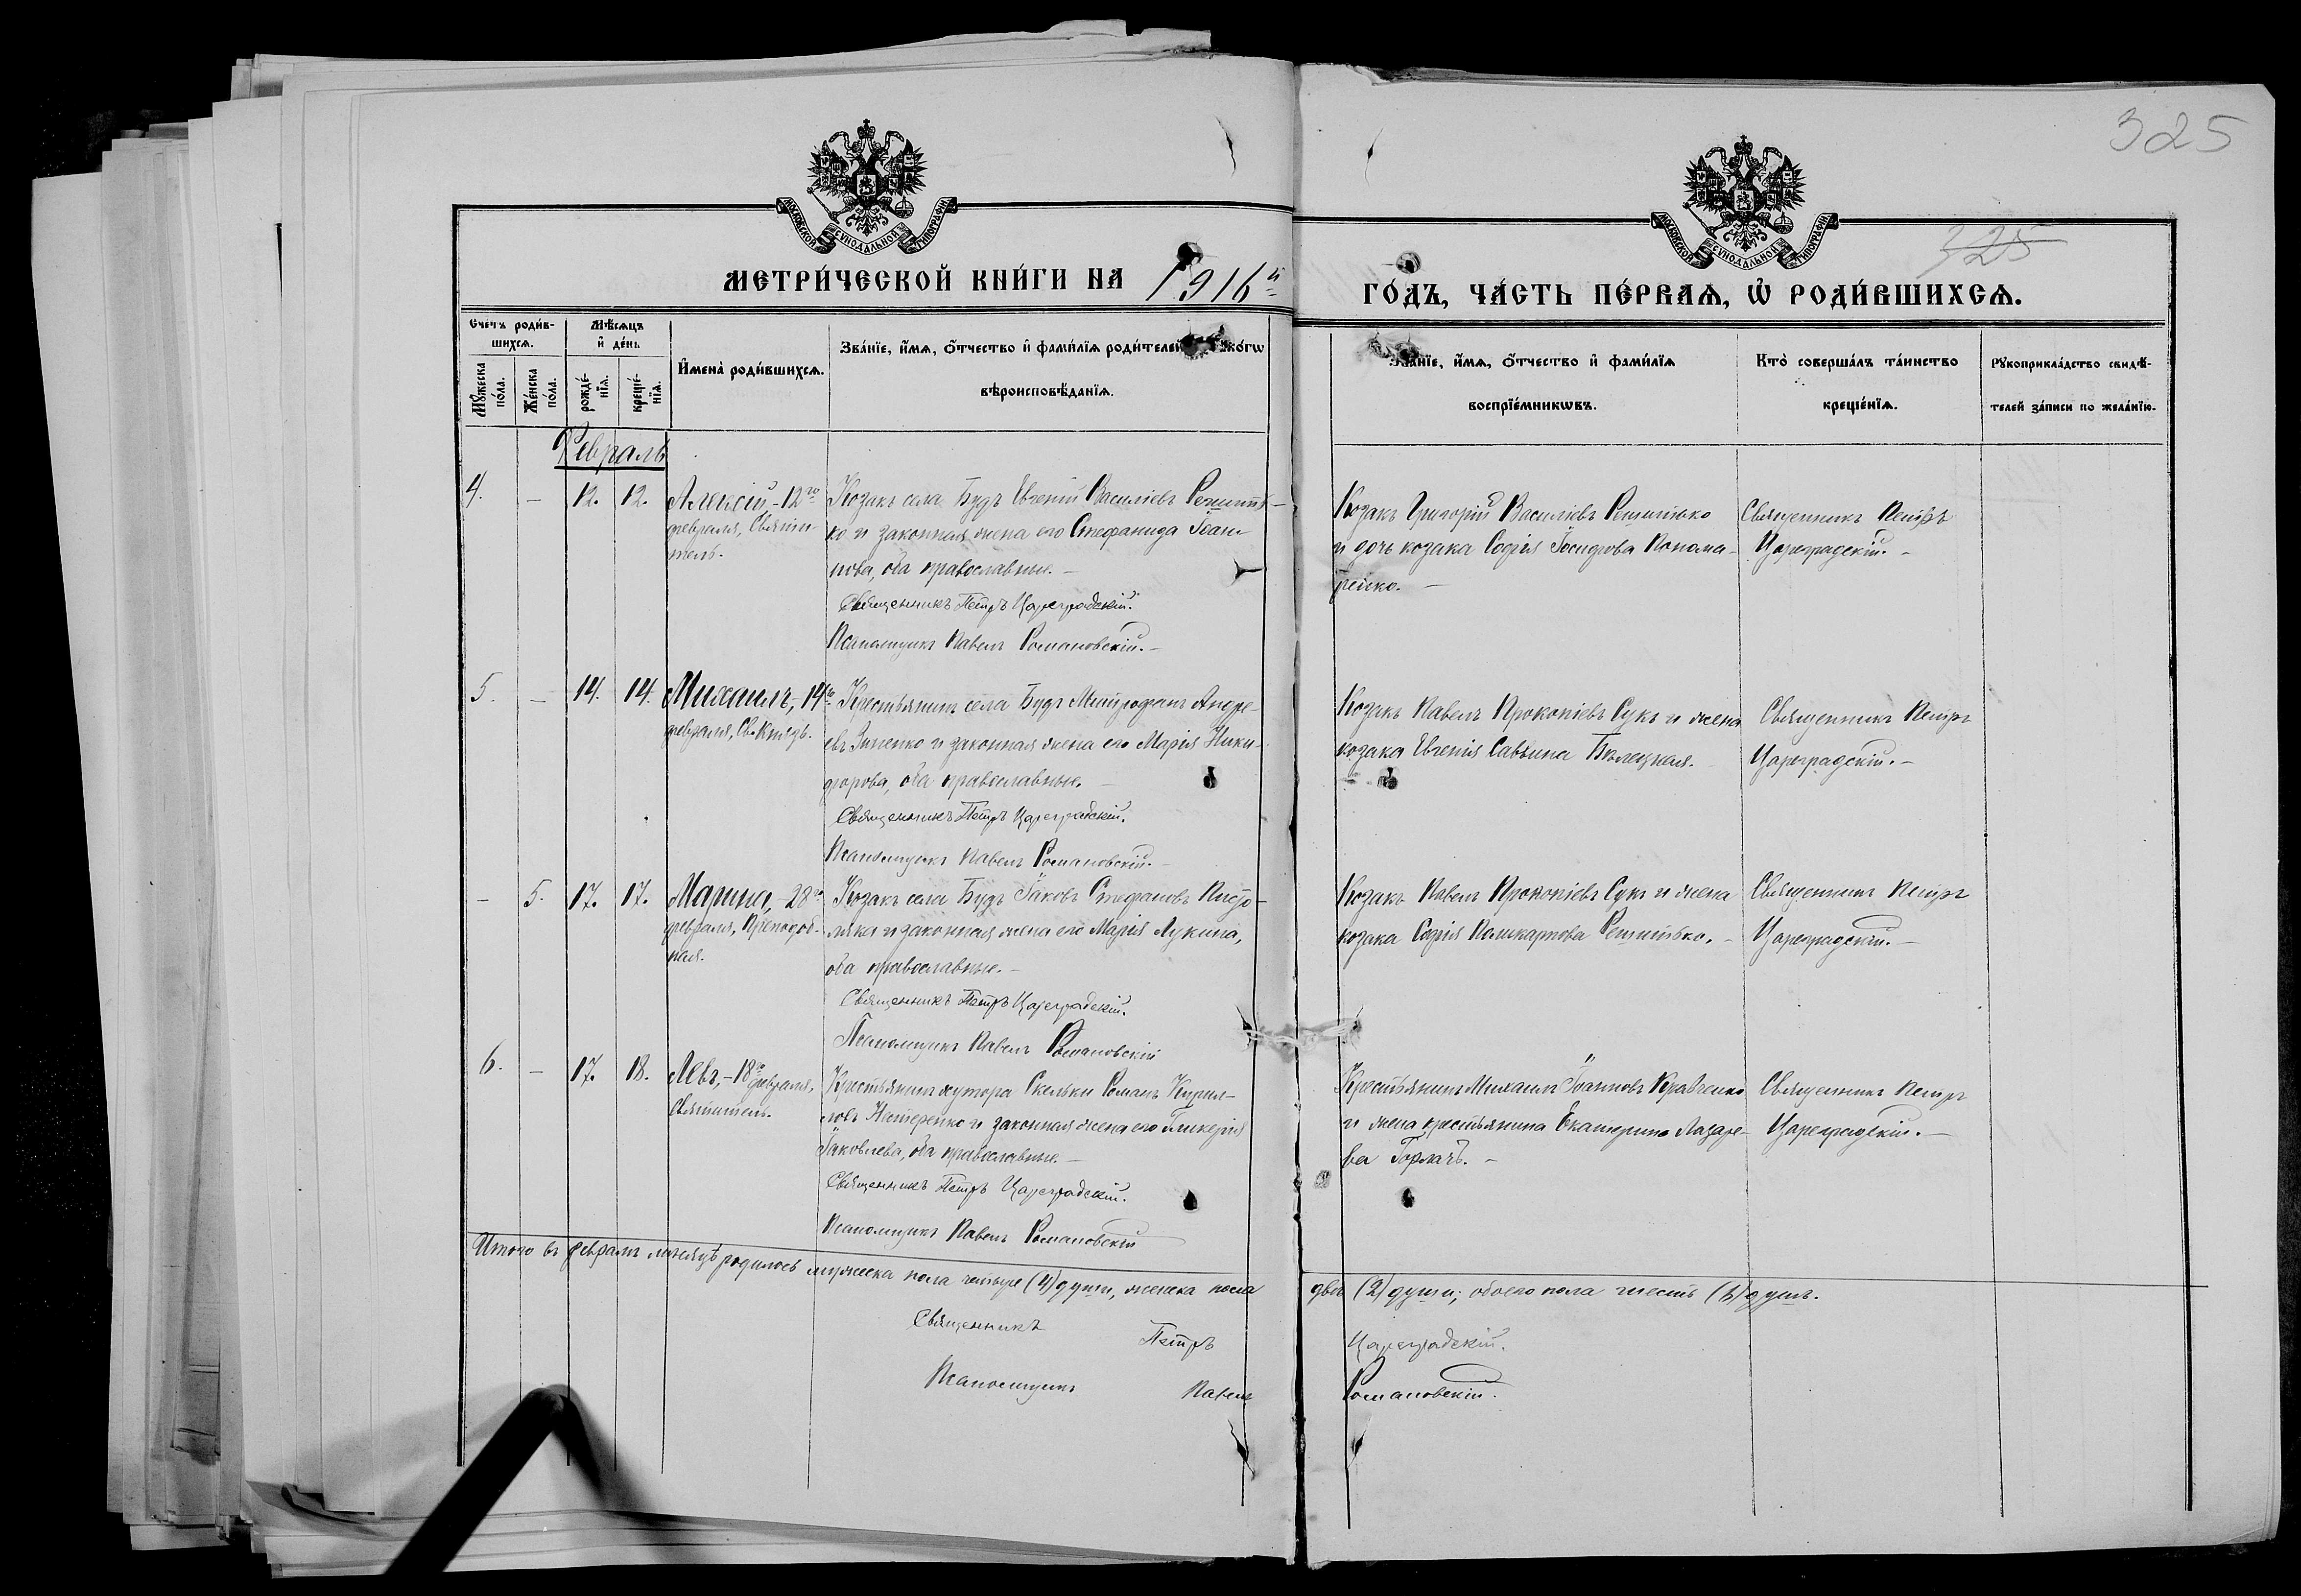 325
МОСКОВСКОЙ СѴНОДАЛЬНОЙ ТИПОГРАФІИ
МОСКОВСКОЙ СѴНОДАЛЬНОЙ ТИПОГРАФІИ
325
МЕТРИ́ЧЕСКОЙ КНИ́ГИ НА 1916й
ГО́ДЪ, ЧА́СТЬ ПЕ́РВАѦ, Ѽ РОДИ́ВШИХСѦ.
Счетъ роди́в-
шихсѧ.
Мѣ́сѧцъ
и҆ де́нь.
Мꙋ́жеска по́ла.
Же́нска по́ла.
рожде́-
нїѧ.
креще́-
нїѧ.
И҆мена̀ роди́вшихсѧ.
Зва́нїе, и҆́мѧ, ѻ҆́тчество и҆ фами́лїѧ роди́телей
ко́гѡ
вѣроисповѣ́данїѧ.
Зва́нїе, и҆́мѧ, ѻ҆́тчество и҆ фами́лїѧ
воспрїе́мникѡвъ.
Кто̀ соверша́лъ та́инство
креще́нїѧ.
Рꙋкоприкла́дство свидѣ́-
телей за́писи по жела́нїю.
Февраль
4. - 12. 12. Алексій - 12го
февраля, Святи-
тель.
Козакъ села Будъ Евгеній Василіевъ Решить-
ко и законная жена его Стефанида Іоан-
нова, оба православные. -
Священникъ Петръ Цареградскій.
Псаломщикъ Павелъ Романовскій. -
Козакъ Григорій Василіевъ Решитько
и дочь козака Софія Іосифова Понома-
ренко. -
Священникъ Петръ
Цареградскій. -
5. - 14. 14. Михаилъ, - 14го
февраля, Св. Князь.
Крестьянинъ села Будъ Митрофанъ Андре-
евъ Зиненко и законная жена его Марія Ники-
форова, оба православные. -
Священникъ Петръ Цареградскій.
Псаломщикъ Павелъ Романовскій. -
Козакъ Павелъ Прокопіевъ Сукъ и жена
козака Евгенія Саввина Бѣлецкая.
Священникъ Петръ
Цареградскій. -
- 5. 17. 17. Марина, - 28го
февраля, Преподоб-
ная.
Козакъ села Будъ Іаковъ Стефановъ
и законная жена его Марія Лукина,
оба православные. -
Священникъ Петръ Цареградскій.
Псаломщикъ Павелъ Романовскій
Козакъ Павелъ Прокопіевъ Сукъ и жена
козака Софія Поликарпова Решитько. -
Священникъ Петръ
Цареградскій. -
6. - 17. 18. Левъ, - 18го февраля,
Святитель.
Крестьянинъ хутора Скельки Романъ Кирил-
ловъ Нестеренко и законная жена его Гликерія
Іаковлева, оба православные. -
Священникъ Петръ Цареградскій.
Псаломщикъ Павелъ Романовскій
Крестьянинъ Михаилъ Іоанновъ Кравченко
и жена крестьянина Екатерина Лазаре-
ва Горлачъ. -
Священникъ Петръ
Цареградскій. -
Итого въ февралѣ мѣсяцѣ родилось мужеска пола четыре (4) души, женска пола
двѣ (2) души; обоего пола шесть (6) душъ.
Священникъ Петръ Цареградскій.
Псаломщикъ Павелъ Романовскій.